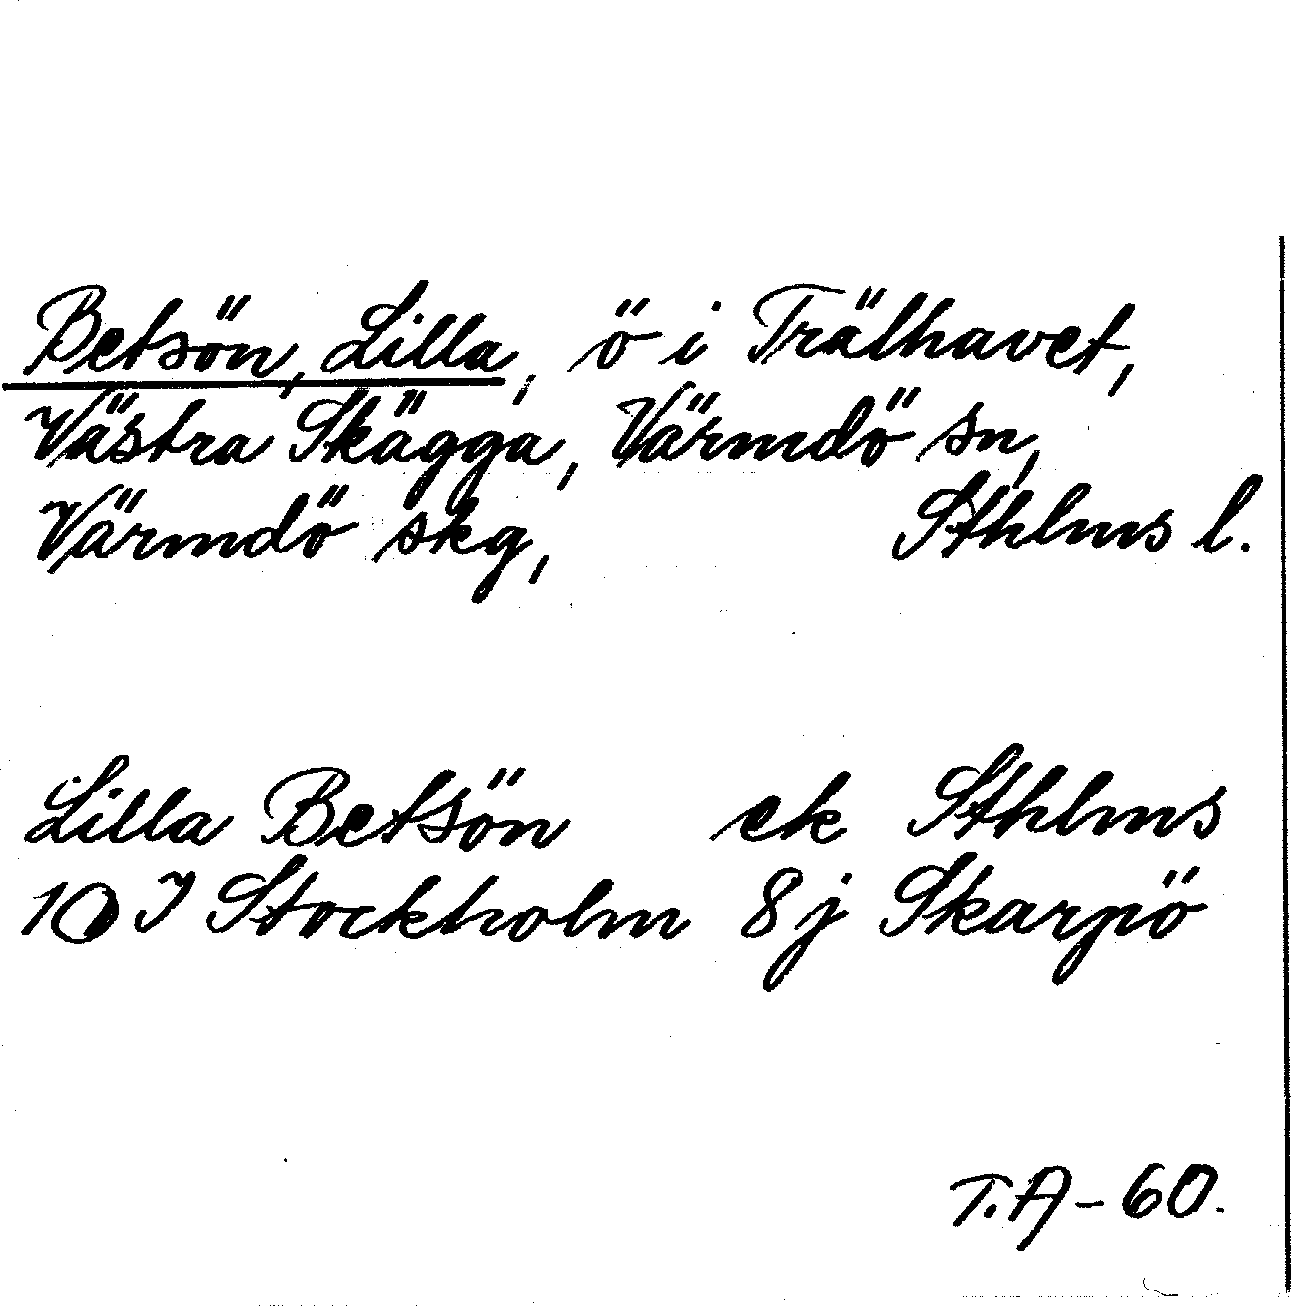 Betsön, Lilla, ö i Trälhavet,
Västra Skägga, Värmdö sn,
Värmdö skg, Sthlms l.
Lilla Betsön ek Sthlms
10 I Stockholm 8j Skarpö
T.A-60.